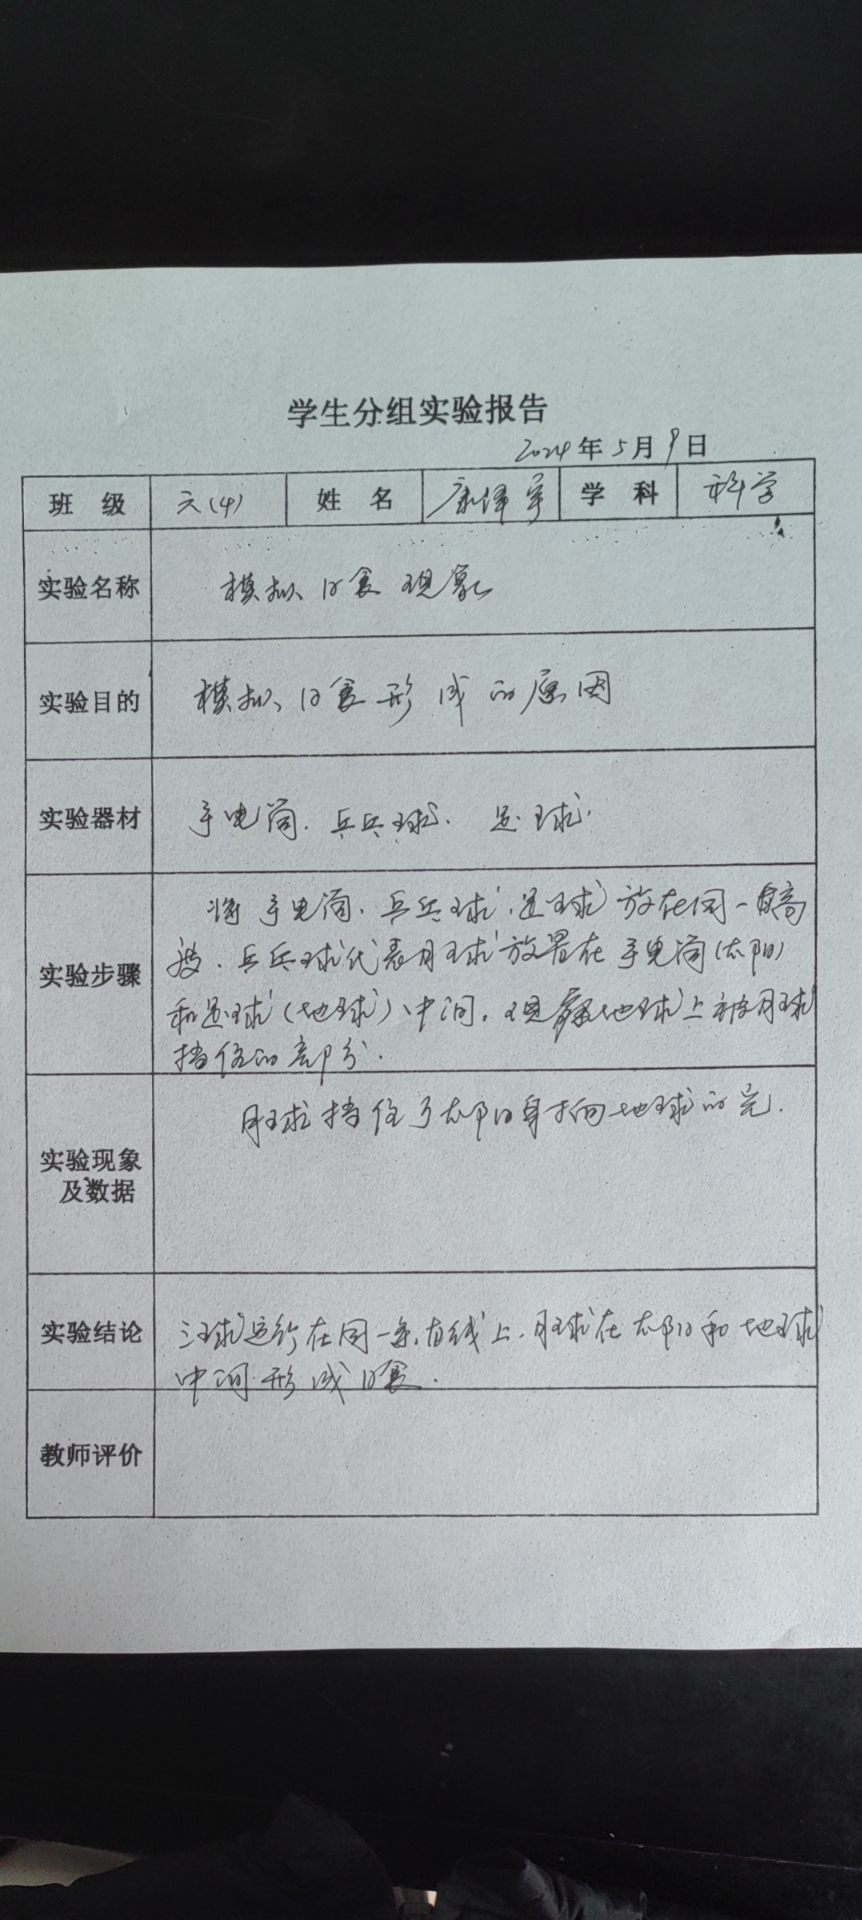 学生分组实验报告
2024年5月9日
班 级 六(4) 姓 名 康泽宇 学 科 科学
实验名称 模拟日食现象
实验目的 模拟日食形成的原因
实验器材 手电筒、乒乓球、足球.
将手电筒、乒乓球、足球放在同一高
实验步骤 度.乒乓球代表月球放置在手电筒(太阳)
和足球(地球)中间,观察地球上被月球
挡住的部分.
月球挡住了太阳射向地球的光.
实验现象
及数据
实验结论 三球运行在同一条直线上,月球在太阳和地球
中间形成日食.
教师评价